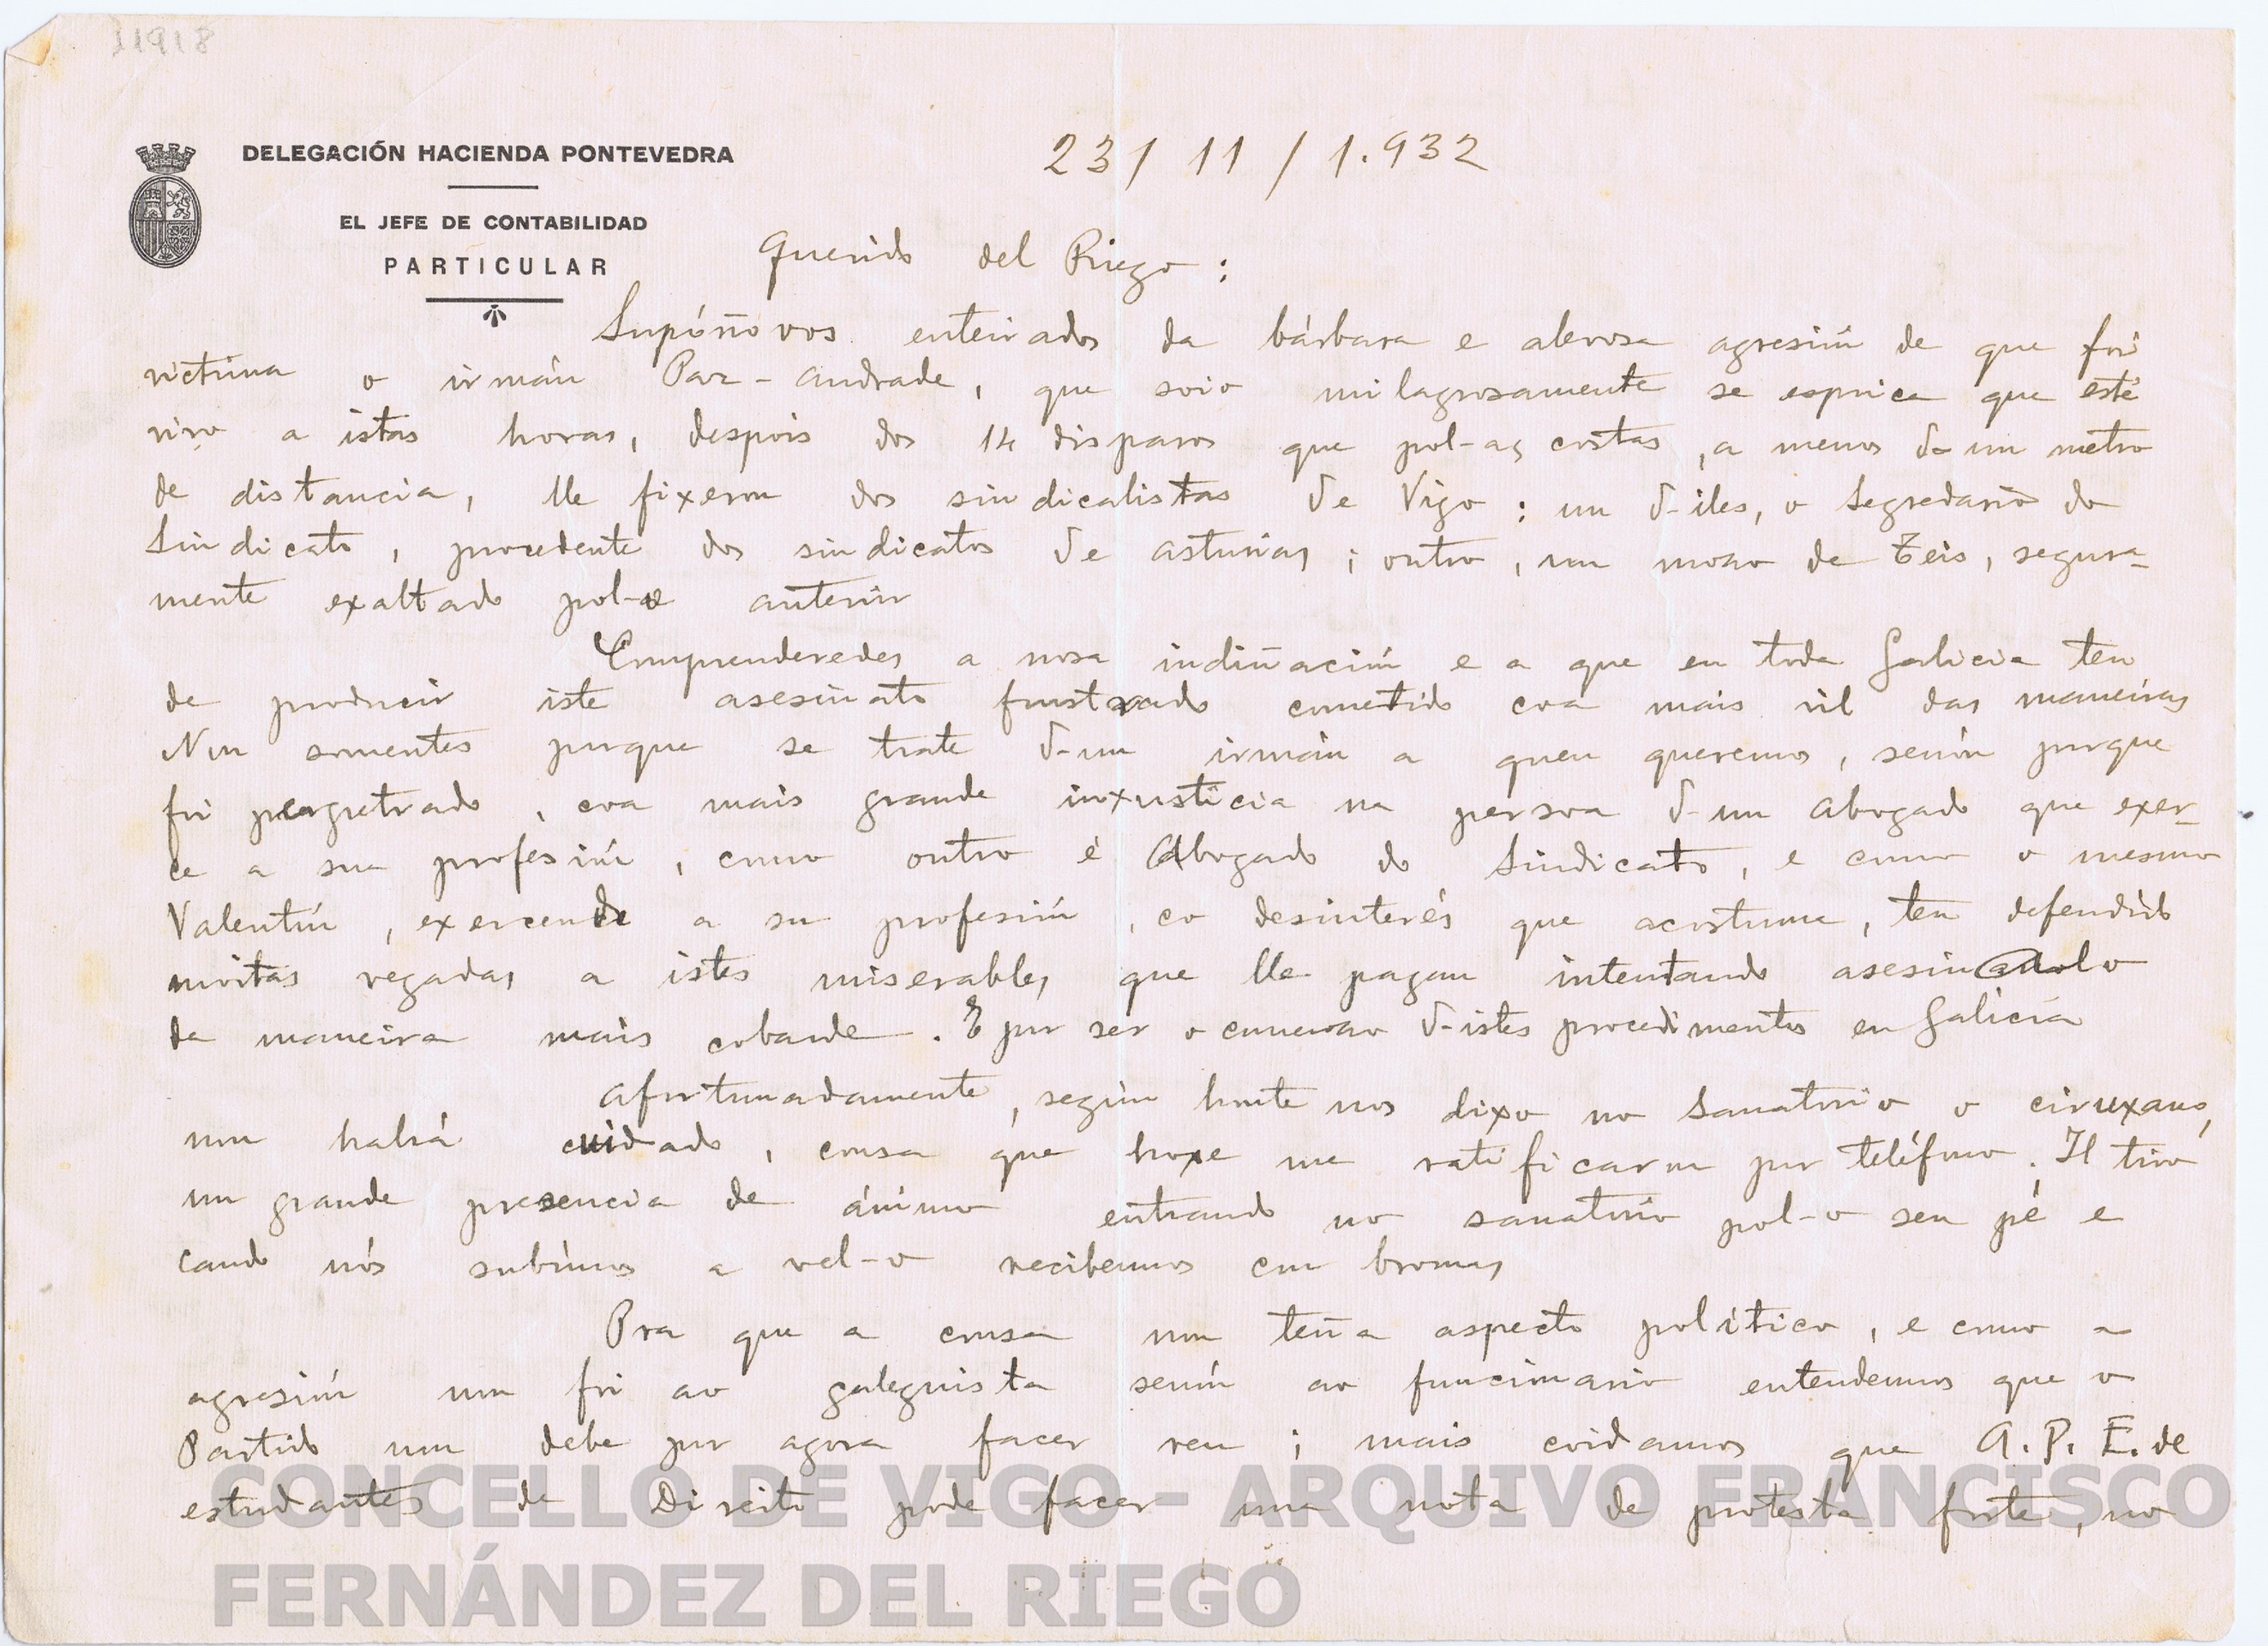 11918
DELEGACIÓN HACIENDA PONTEVEDRA
EL JEFE DE CONTABILIDAD
PARTICULAR
23 / 11 / 1.932
Querido del Riego:
Supóñovos enteirados da bárbara e alevosa agresión de que foi
victima o irmán Paz-Andrade, que soio milagrosamente se esprica que esté
vivo a istas horas, despois dos 14 disparos que pol-as costas, a menos d-un metro
de distancia, lle fixeron dos sindicalistas de Vigo: un d-iles, o segredario do
Sindicato, procedente dos sindicatos de Asturias; outro, un mozo de Teis, segura-
mente exaltado pol-o anterior
Comprenderedes a nosa indiñación e a que en toda Galicia ten
de producir iste asesinato frustrado cometido coa mais vil das maneiras
Non somentes porque se trate d-un irmán a quen queremos, senón porque
foi perpetrado, coa mais grande inxusticia na persoa d-un abogado que exer-
ce a sua profesión, como outro é Abogado do Sindicato, e como o mesmo
Valentín, exercendo a su profesión, co desinterés que acostuma, ten defendido
moitas vegadas a istes miserables que lle pagan intentando asesinalo
da maneira mais cobarde. E por ser o comenzo d-istes procedimentos en Galicia
Afortunadamente, según honte nos dixo no Sanatorio o ciruxano,
non habrá cuidado, cousa que hoxe me ratificaron por teléfono. Il tivo
un grande presencia de ánimo entrando no sanatorio pol-o seu pé e
cando nós subimos a vel-o recibeunos con bromas
Pra que a cousa non teña aspecto político, e como a
agresión non foi ao galeguista senón ao funcionario entendemos que o
Partido non debe por agora facer ren; mais coidamos que A.P.E. de
estudantes de Direito pode facer una nota de protesta forte, no
CONCELLO DE VIGO - ARQUIVO FRANCISCO
FERNÁNDEZ DEL RIEGO